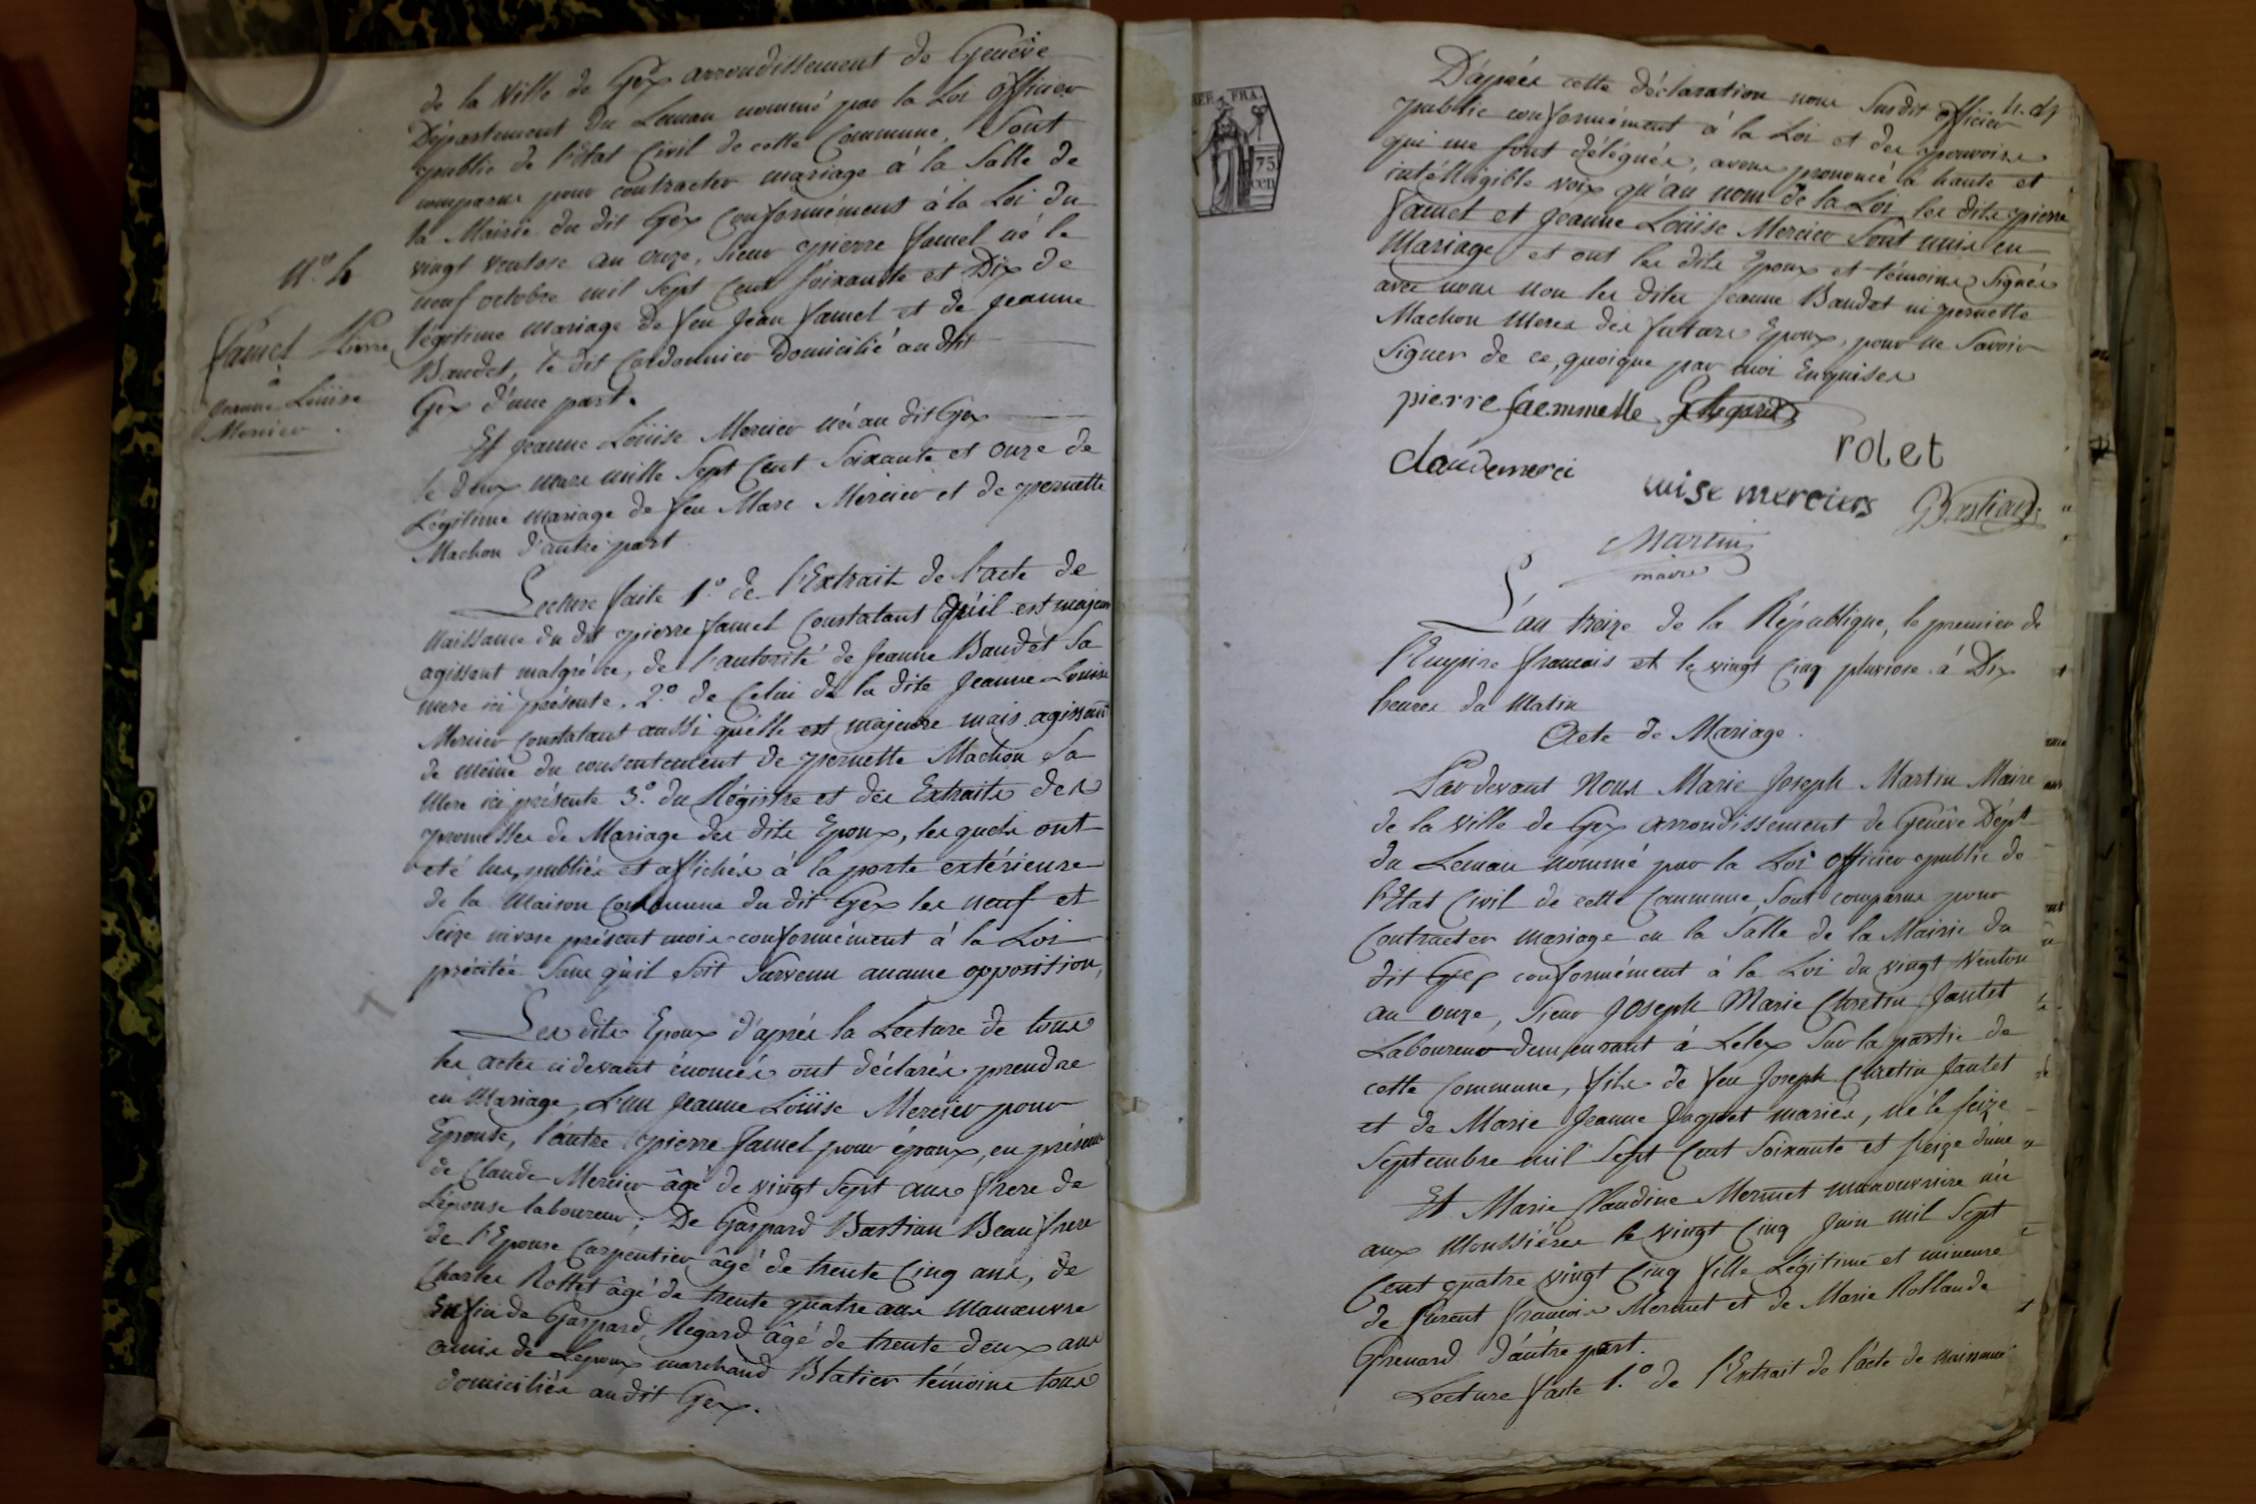 de la Ville de Gex arrondissement de Genève
Département du Leman nommé par la Loi officier
public de l'Etat Civil de cette Commune, Sont
comparus pour contracter mariage à la Salle de
la Mairie du dit Gex Conformément à la Loi du
vingt ventose an onze, Sieur pierre famel né le
neuf octobre mil Sept Cent Soixante et Dix de
légitime mariage de feu Jean famel et de Jeanne
Baudet, le dit Cordonnier Domicilié au dit
Gex d'une part.
N.º 4
famel Pierre
à
Jeanne Louise
Mercier.
Et Jeanne Loüise Mercier née au dit Gex
le deux mars mille Sept Cent Soixante et onze de
Légitime mariage de feu Marc Mercier et de pernette
Machon d'autre part
Lecture faite 1.º de l'Extrait de l'acte de
Naissance du dit pierre famel Constatant qu'il est majeur
agissant malgré ce, de l'autorité de Jeanne Baudet Sa
mere ici présente, 2.º de Celui de la dite Jeanne Louise
Mercier Constatant aussi qu'elle est majeure mais agissant
de même du consentement de pernette Machon Sa
Mere ici présente 3.º du Régistre et des Extraits des
promesses de Mariage des dits Epoux, lesquels ont
eté lus, publiés et affichés à la porte extérieure
de la Maison Commune du dit Gex les neuf et
Seize nivose présent mois conformément à la Loi
précitée Sans qu'il Soit Survenu aucune opposition,
Les dits Epoux d'après la Lecture de tous
les actes ci devant énoncés ont déclarés prendre
en Mariage, L'un Jeanne Loüise Mercier pour
Epouse, l'autre pierre famel pour époux, en présence
de Claude Mercier âgé de vingt Sept ans frere de
L'épouse laboureur; De Gaspard Bastian Beau frere
de l'Epouse Carpentier âgé de trente Cinq ans, de
Charles Rottet âgé de trente quatre ans Manœuvre
Enfin de Gaspard Regard âgé de trente deux ans
amis de L'epoux marchand Blatier témoins tous
domiciliés au dit Gex.
FRA.
75
cen
D'après cette déclaration nous Susdit officier
public conformément à la Loi et des pouvoirs
qui me sont délégués, avons prononcé à haute et
intélligible voix qu'au nom de la Loi les dits pierre
famel et Jeanne Loüise Mercier Sont unis en
Mariage et ont les dits Epoux et témoins Signés
avec nous non les dites Jeanne Baudet ni pernette
Machon Meres des futurs Epoux, pour ne Savoir
Signer de ce, quoique par moi Enquises
pierre faemmelle G Regard
rolet
claudemerci
uise merciers Bastian
Martin
maire
L'an treize de la République, le premier de
l'Empire francais et le vingt Cinq pluviose à Dix
heures du Matin
Acte de Mariage.
Pardevant Nous Marie Joseph Martin Maire
de la Ville de Gex arrondissement de Genève Dépt
du Leman Nommé par la Loi officier public de
l'Etat Civil de cette Commune, Sont comparus pour
Contracter mariage en la Salle de la Mairie du
dit Gex conformément à la Loi du vingt Ventose
an onze, Sieur Joseph Marie Chretin Jantet
Laboureur demeurant à Lelex Sur la partie de
cette Commune, fils de feu Joseph Chretin Jantet
et de Marie Jeanne Jaquet mariés, né le seize
Septembre mil Sept Cent Soixante et seize d'une
Et Marie Claudine Mermet manouvriere née
aux Moussières le vingt Cinq Juin mil Sept
Cent quatre vingt Cinq fille Légitime et mineure
de florent francois Mermet et de Marie Rollande
Grenard d'autre part.
Lecture faite 1.º de l'Extrait de l'acte de naissance